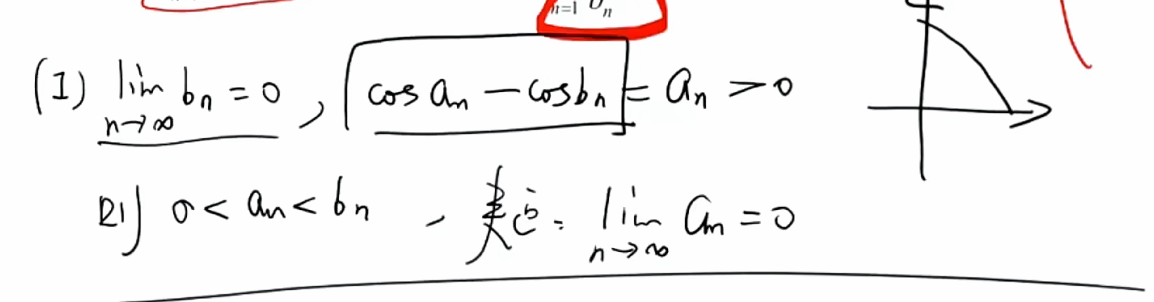 n=1 bn
(I) lim n→∞ bn = 0 , cos an − cos bn = an > 0
则 0 < an < bn , 夹逼: lim n→∞ an = 0